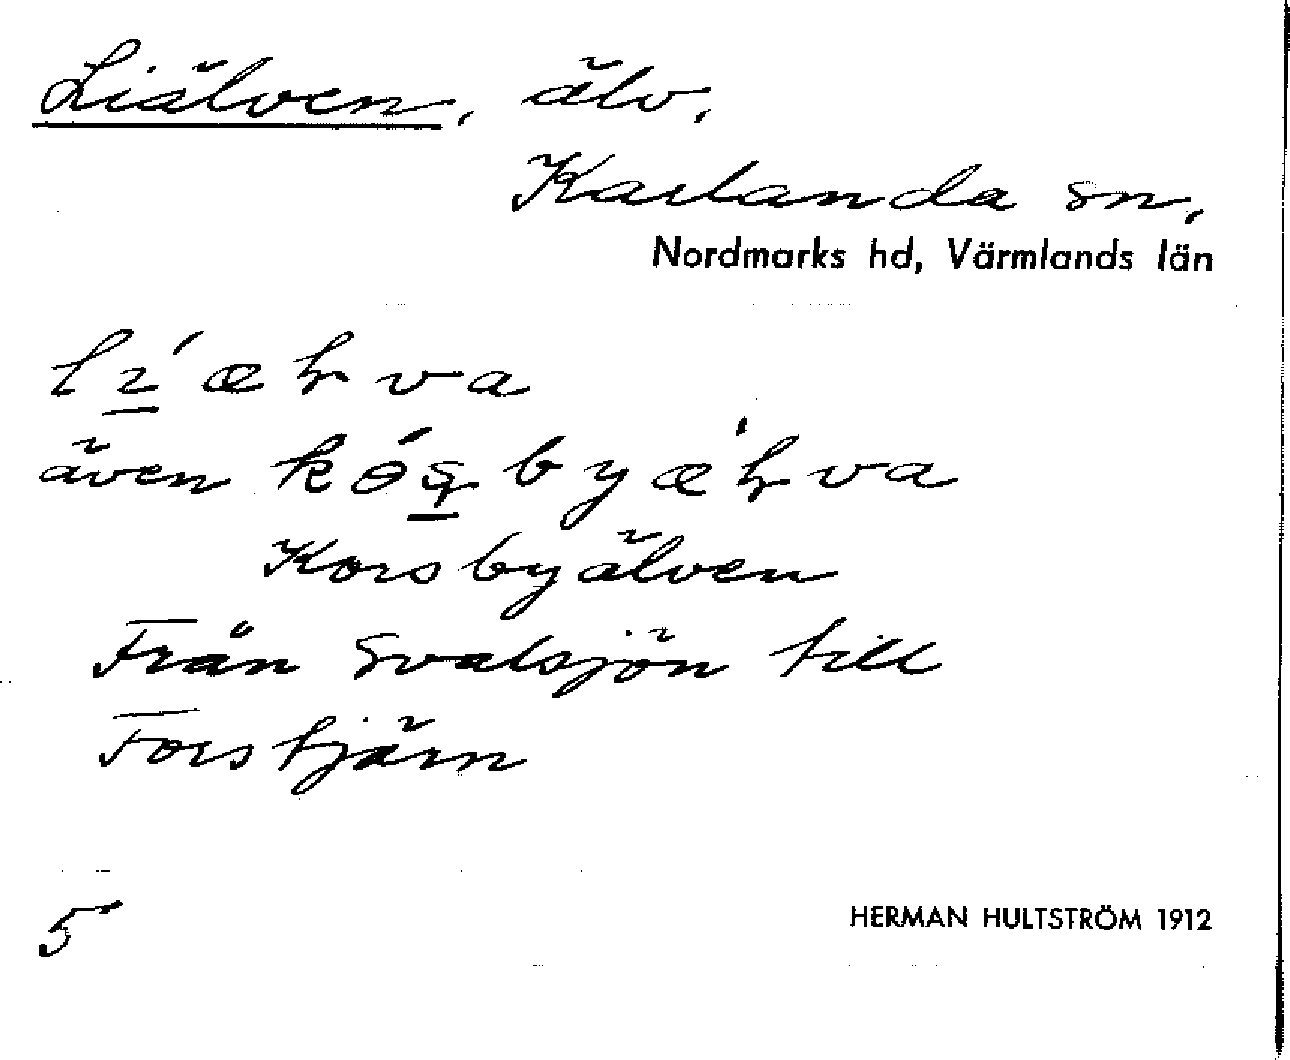 Liälven, älv,
Karlanda sn,
Nordmarks hd, Värmlands län
lɩ́æƚva
även kɵ́s̨byǽƚva
Korsbyälven
Från Svalsjön till
Forstjärn
5
HERMAN HULTSTRÖM 1912